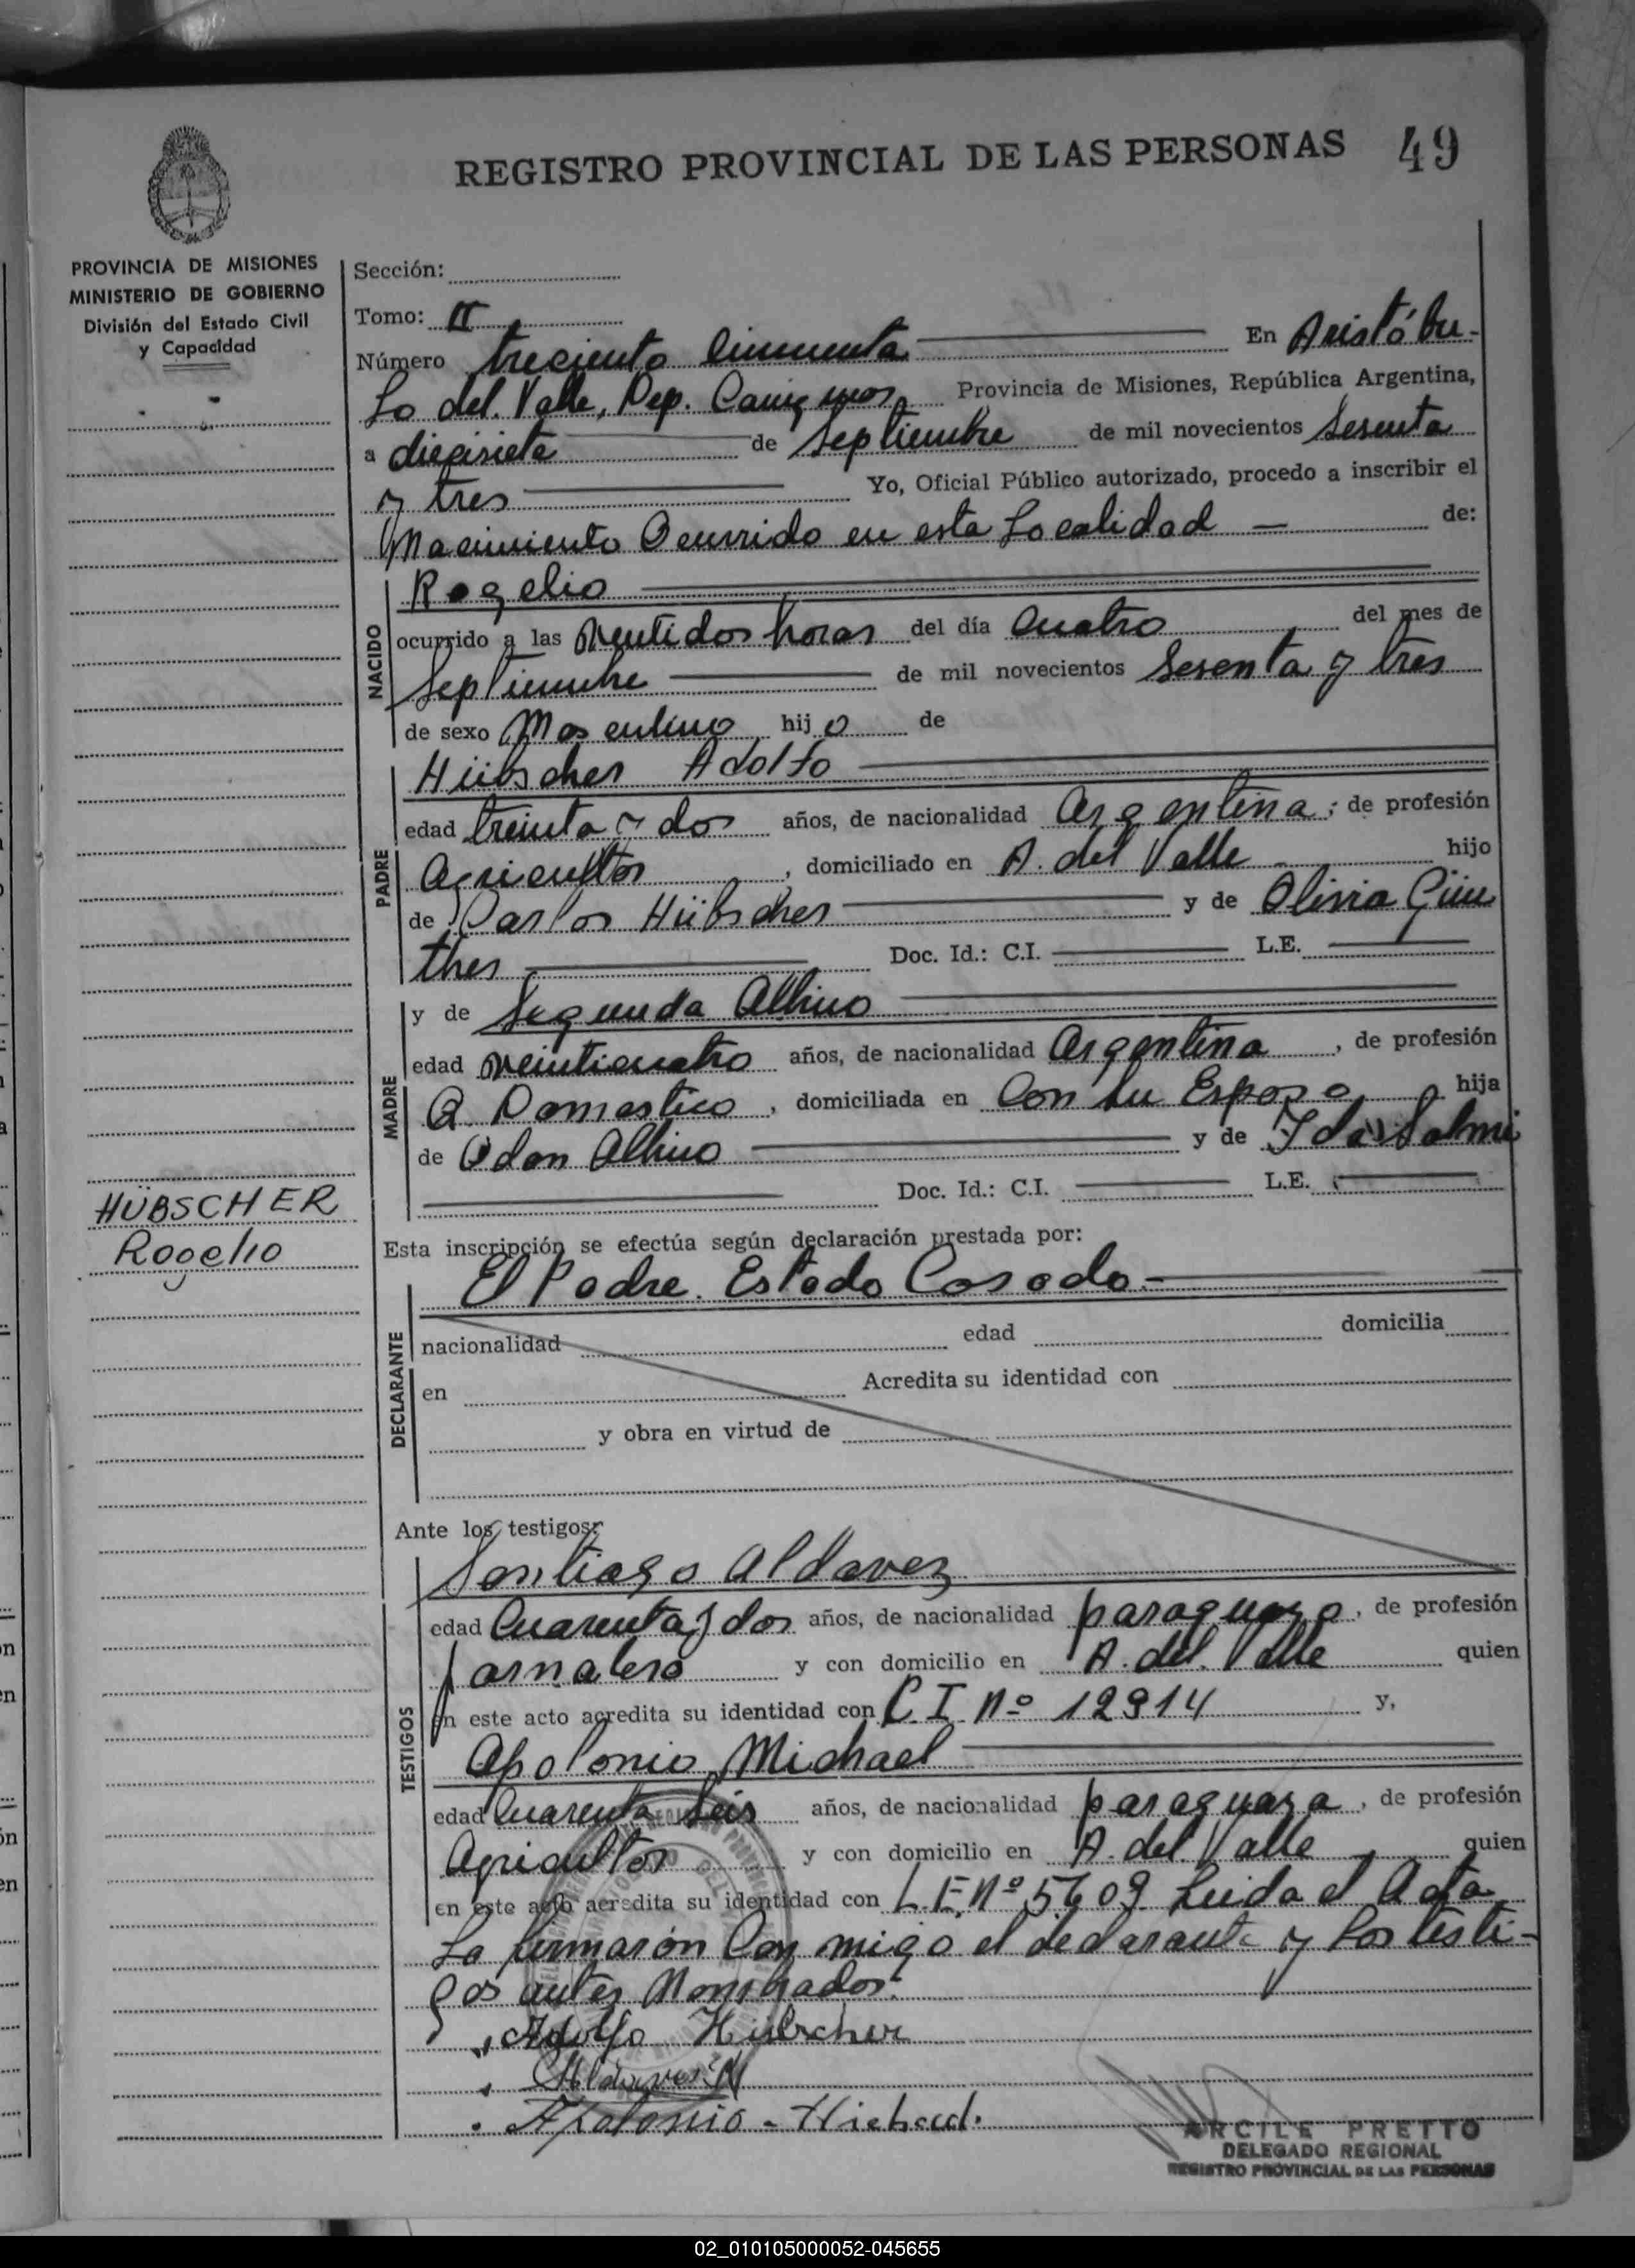 REGISTRO PROVINCIAL DE LAS PERSONAS 49
PROVINCIA DE MISIONES
MINISTERIO DE GOBIERNO
División del Estado Civil
y Capacidad
Sección:
Tomo: II
Número treciento Cincuenta En Aristóbu-
lo del Valle, Dep. Cainguas Provincia de Misiones, República Argentina,
a diecisiete de Septiembre de mil novecientos Sesenta
y tres Yo, Oficial Público autorizado, procedo a inscribir el
Nacimiento Ocurrido en esta Localidad de:
NACIDO
Rogelio
ocurrido a las Ventidos horas del día Cuatro del mes de
Septiembre de mil novecientos Sesenta y tres
de sexo Masculino hijo de
PADRE
Hübscher Adolfo
edad treinta y dos años, de nacionalidad Argentina; de profesión
Agricultor, domiciliado en A. del Valle hijo
de Carlos Hübscher y de Olivia Gün
ther Doc. Id.: C.I. L.E.
MADRE
y de Segunda Albino
edad veinticuatro años, de nacionalidad Argentina, de profesión
Q. Domestico, domiciliada en Con su Esposo hija
de Odon Albino y de Ida Salmi
Doc. Id.: C.I. L.E.
HÜBSCHER
Rogelio
Esta inscripción se efectúa según declaración prestada por:
DECLARANTE
El Padre. Estado Casado.-
nacionalidad edad domicilia
en Acredita su identidad con
y obra en virtud de
Ante los testigos:
TESTIGOS
Santiago Aldavez
edad Cuarenta y dos años, de nacionalidad paraguaya, de profesión
Jornalero y con domicilio en A. del Valle quien
en este acto acredita su identidad con C.I. Nº 12914 y,
Apolonio Michael
edad Cuarenta Seis años, de nacionalidad paraguaya, de profesión
Agricultor y con domicilio en A. del Valle quien
en este acto acredita su identidad con L.E. Nº 5609 Leida el Acta
La firmarón Con migo el declarante y los testi-
gos antes Nombrados.
Adolfo Hübscher
Aldavez
Apolonio - Michael.
ARCILE PRETTO
DELEGADO REGIONAL
REGISTRO PROVINCIAL DE LAS PERSONAS
02_010105000052-045655